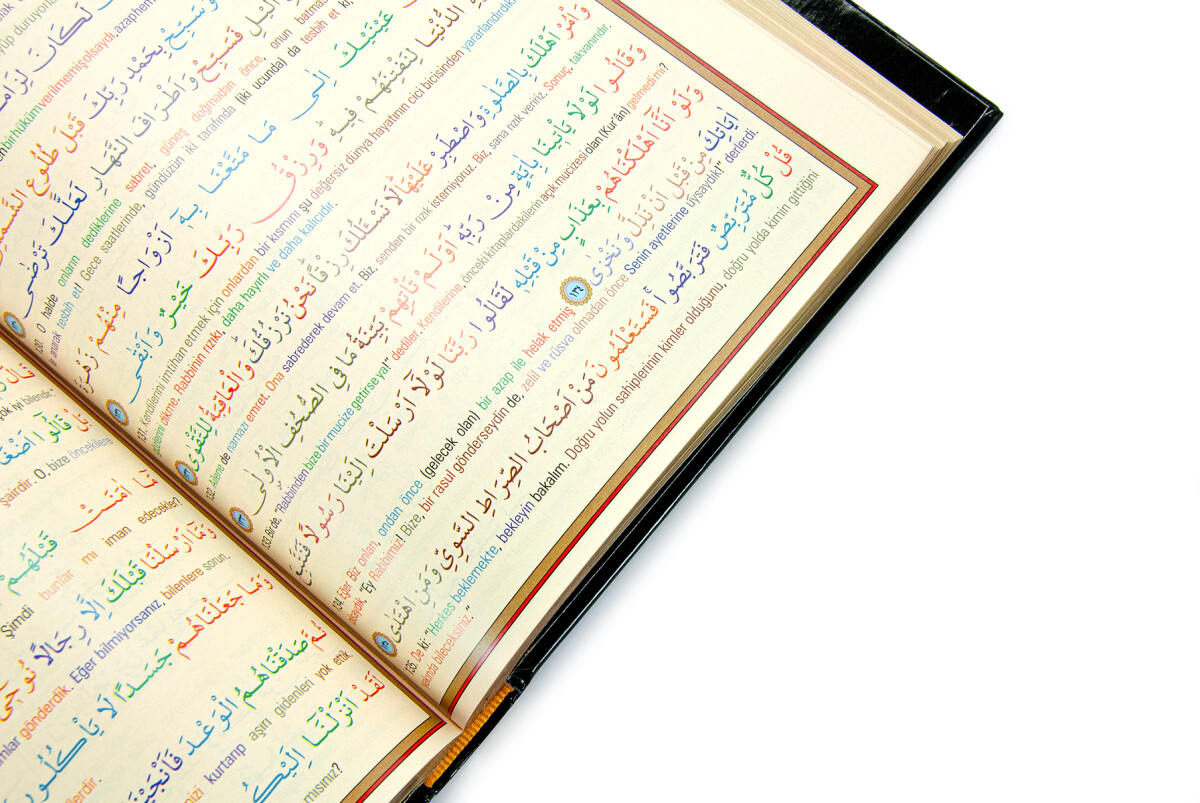 yüp duruyorlar
لَكَانَ لِزَامًا
bir hüküm verilmemiş olsaydı, azap hem
وَسَبِّحْ بِحَمْدِ رَبِّكَ قَبْلَ طُلُوعِ الشَّمْسِ
130. O halde onların dediklerine sabret, güneş doğmadan önce, onun batmas
الَّيْلِ فَسَبِّحْ وَاَطْرَافَ النَّهَارِ لَعَلَّكَ تَرْضٰى
tesbih et! Gece saatlerinde, gündüzün iki tarafında (iki ucunda) da tesbih et ki,
عَيْنَيْكَ اِلٰى مَا مَتَّعْنَا بِهٖٓ اَزْوَاجًا مِنْهُمْ زَهْرَةَ
الدُّنْيَا لِنَفْتِنَهُمْ فٖيهِ وَرِزْقُ رَبِّكَ خَيْرٌ وَاَبْقٰى
131. Kendilerini imtihan etmek için onlardan bir kısmını şu değersiz dünya hayatının cici bicisinden yararlandırdık
gözlerini dikme. Rabbinin rızkı, daha hayırlı ve daha kalıcıdır.
وَأْمُرْ اَهْلَكَ بِالصَّلٰوةِ وَاصْطَبِرْ عَلَيْهَا لَا نَسْـَٔلُكَ رِزْقًا نَحْنُ نَرْزُقُكَ وَالْعَاقِبَةُ لِلتَّقْوٰى
132. Ailene de namazı emret. Ona sabrederek devam et. Biz, senden bir rızık istemiyoruz. Biz, sana rızık veririz. Sonuç, takvanındır.
وَقَالُوا لَوْلَا يَأْتٖينَا بِاٰيَةٍ مِنْ رَبِّهٖ اَوَلَمْ تَأْتِهِمْ بَيِّنَةُ مَا فِي الصُّحُفِ الْاُولٰى
133. Bir de, "Rabbinden bize bir mucize getirse ya!" dediler. Kendilerine, önceki kitaplardakilerin açık mucizesi olan (Kur'ân) gelmedi mi?
وَلَوْ اَنَّٓا اَهْلَكْنَاهُمْ بِعَذَابٍ مِنْ قَبْلِهٖ لَقَالُوا رَبَّنَا لَوْلَٓا اَرْسَلْتَ اِلَيْنَا رَسُولًا فَنَتَّبِعَ
اٰيَاتِكَ مِنْ قَبْلِ اَنْ نَذِلَّ وَنَخْزٰى ١٣٤
134. Eğer Biz onları, ondan önce (gelecek olan) bir azap ile helak etmiş
olsaydık, "Ey Rabbimiz! Bize, bir rasul gönderseydin de, zelil ve rüsva olmadan önce Senin ayetlerine uysaydık!" derlerdi.
قُلْ كُلٌّ مُتَرَبِّصٌ فَتَرَبَّصُوا فَسَتَعْلَمُونَ مَنْ اَصْحَابُ الصِّرَاطِ السَّوِيِّ وَمَنِ اهْتَدٰى
135. De ki: "Herkes beklemekte, bekleyin bakalım. Doğru yolun sahiplerinin kimler olduğunu, doğru yolda kimin gittiğini
yakında bileceksiniz."
çok iyi bilendir."
بَلْ قَالُٓوا اَضْغَا
şairdir. O, bize öncekilere
مَٓا اٰمَنَتْ قَبْلَهُمْ
Şimdi bunlar mı iman edecekler!
وَمَٓا اَرْسَلْنَا قَبْلَكَ اِلَّا رِجَالًا نُوحٖٓي
mlar gönderdik. Eğer bilmiyorsanız, bilenlere sorun.
وَمَا جَعَلْنَاهُمْ جَسَدًا لَا يَأْكُلُونَ
lerdir.
ثُمَّ صَدَقْنَاهُمُ الْوَعْدَ فَاَنْجَيْنَا
mizi kurtarıp aşırı gidenleri yok ettik.
لَقَدْ اَنْزَلْنَٓا اِلَيْكُمْ
mısınız?